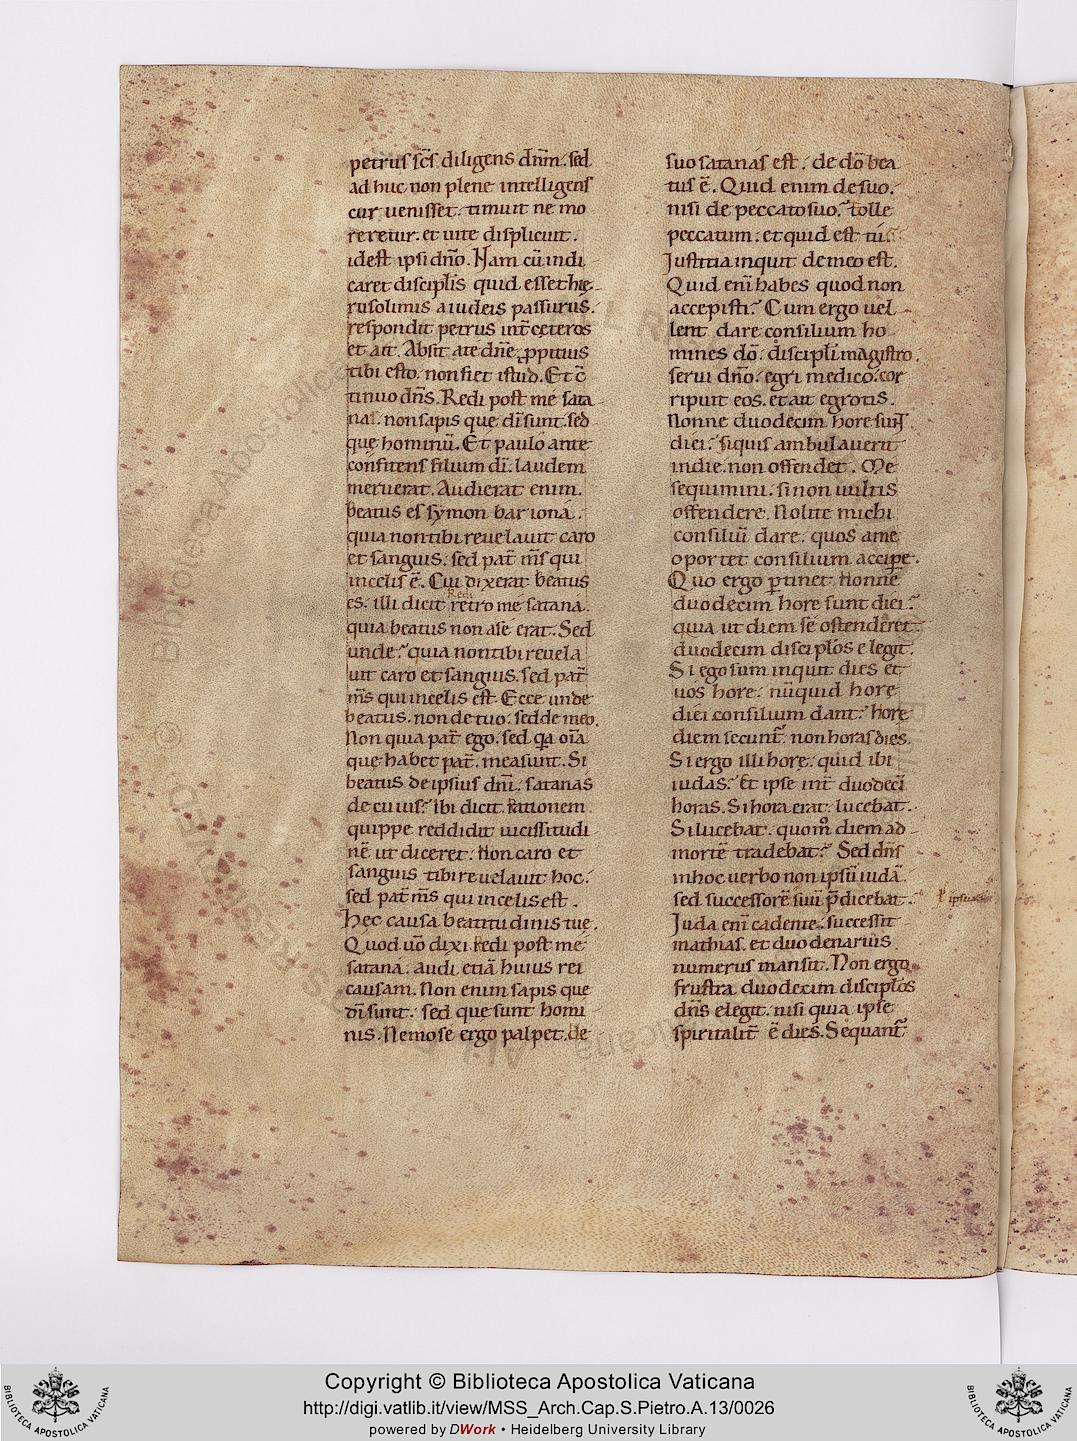 petrus sc̄s diligens dn̄m. sed
ad huc non plene intelligens
cur uenisset. timuit ne mo
reretur. et uite displicuit.
idest ipsi dn̄o. Nam cū indi
caret discipl̄is quid esset hie
rusolimis a iudeis passurus.
respondit petrus int̄ cęteros
et ait. Absit a te dn̄e. ꝓpitius
tibi esto. non fiet istud. Et c̄
tinuo dn̄s. Redi post me sata
nas. non sapis que dī sunt. sed
que hominū. Et paulo ante
confitens filium dī. laudem
meruerat. Audierat enim.
beatus es symon bar iona.
quia non tibi reuelauit caro
et sanguis. sed pat̄ m̄s qui
in celis ē. Cui dixerat beatus
Redi
es. illi dicit retro me satana.
quia beatus non a se erat. Sed
unde? quia non tibi reuela
uit caro et sanguis. sed pat̄
m̄s qui in celis est. Ecce unde
beatus. non de tuo. sed de meo.
Non quia pat̄ ego. sed qa om̄a
que habet pat̄. mea sunt. Si
beatus de ipsius dn̄i. satanas
de cuius? ibi dicit. Rationem
quippe reddidit uicissitudi
nē ut diceret. Non caro et
sanguis tibi reuelauit hoc.
sed pat̄ m̄s qui in celis est.
Hec causa beatitudinis tue.
Quod uō dixi. Redi post me
satana. audi etiā huius rei
causam. Non enim sapis que
dī sunt. sed que sunt homi
nis. Nemo se ergo palpet. de
suo satanas est. de dō bea
tus ē. Quid enim de suo.
nisi de peccato suo? tolle
peccatum. et quid est tu
Justitia inquit de meo est.
Quid eni habes quod non
accepisti? Cum ergo uel
lent dare consilium ho
mines dō. discipl̄i magistro.
serui dn̄o. egri medico. cor
ripuit eos. et ait egrotis.
Nonne duodecim hore sunt
diei? si quis ambulauerit
in die. non offendet. Me
sequimini. si non uultis
offendere. Nolite michi
consiliū dare. quos a me
oportet consilium accipe.
Quo ergo ꝑtinet Nonne
duodecim hore sunt diei?
quia ut diem se ostenderet.
duodecim disciplos elegit.
Si ego sum inquit dies et
uos hore. nūquid hore
diei consilium dant? hore
diem secunt̄. non horas dies.
Si ergo illi hore. quid ibi
iudas? Et ipse int̄ duodeci
horas. Si hora erat. lucebat.
Si lucebat. quom̊ diem ad
mortē tradebat? Sed dn̄s
in hoc uerbo non ipsū iudā.
sed successorē suū p̄dicebat.
ł ipsius
Juda eni cadente. successit
mathias. et duodenarius
numerus mansit. Non ergo
frustra duodecim disciplos
dn̄s elegit. nisi quia ipse
spiritalit̄ ē dies. Sequant̄
Copyright © Biblioteca Apostolica Vaticana
http://digi.vatlib.it/view/MSS_Arch.Cap.S.Pietro.A.13/0026
powered by DWork • Heidelberg University Library
BIBLIOTECA APOSTOLICA VATICANA
BIBLIOTECA APOSTOLICA VATICANA